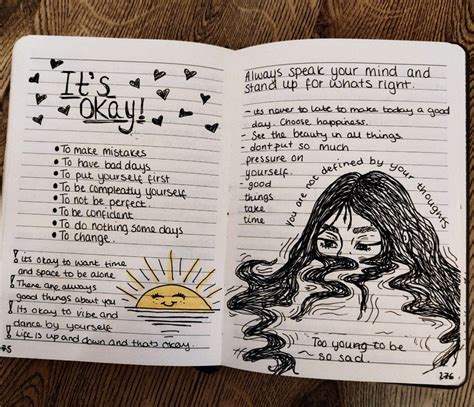 It's
Okay!
• To make mistakes
• To have bad days
• To put yourself first
• To be compleatly yourself
• To not be perfect
• To be confident
• To do nothing some days
• To change.
! its okay to want time
and space to be alone
! There are always
good things about you
! Its okay to vibe and
dance by yourself
! Life is up and down and thats okay.
Always speak your mind and
stand up for whats right.
- its never to late to make today a good
day. Choose happiness.
- See the beauty in all things.
- dont put so much
pressure on
yourself.
- good
things
take
time
you are not defined by your thoughts
Too young to be
so sad.
276